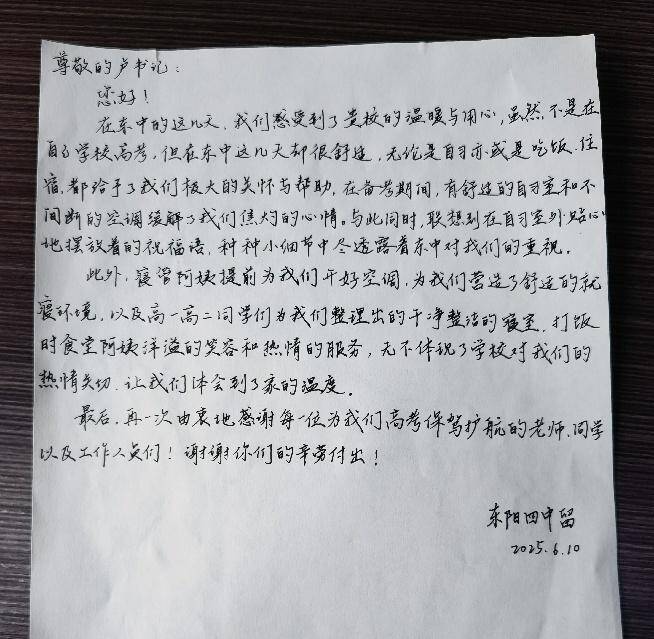 尊敬的卢书记：
您好！
在东中的这几天，我们感受到了贵校的温暖与用心，虽然，不是在
自己学校高考，但在东中这几天却很舒适，无论是自习亦或是吃饭、住
宿，都给予了我们极大的关怀与帮助，在备考期间，有舒适的自习室和不
间断的空调缓解了我们焦灼的心情。与此同时，联想到在自习室外贴心
地摆放着的祝福语，种种小细节中尽透露着东中对我们的重视。
此外，寝管阿姨提前为我们开好空调，为我们营造了舒适的就
寝环境，以及高一高二同学们为我们整理出的干净整洁的寝室，打饭
时食堂阿姨洋溢的笑容和热情的服务，无不体现了学校对我们的
热情关切，让我们体会到了家的温度。
最后，再一次由衷地感谢每一位为我们高考保驾护航的老师、同学
以及工作人员们！谢谢你们的辛劳付出！
东阳四中留
2025.6.10